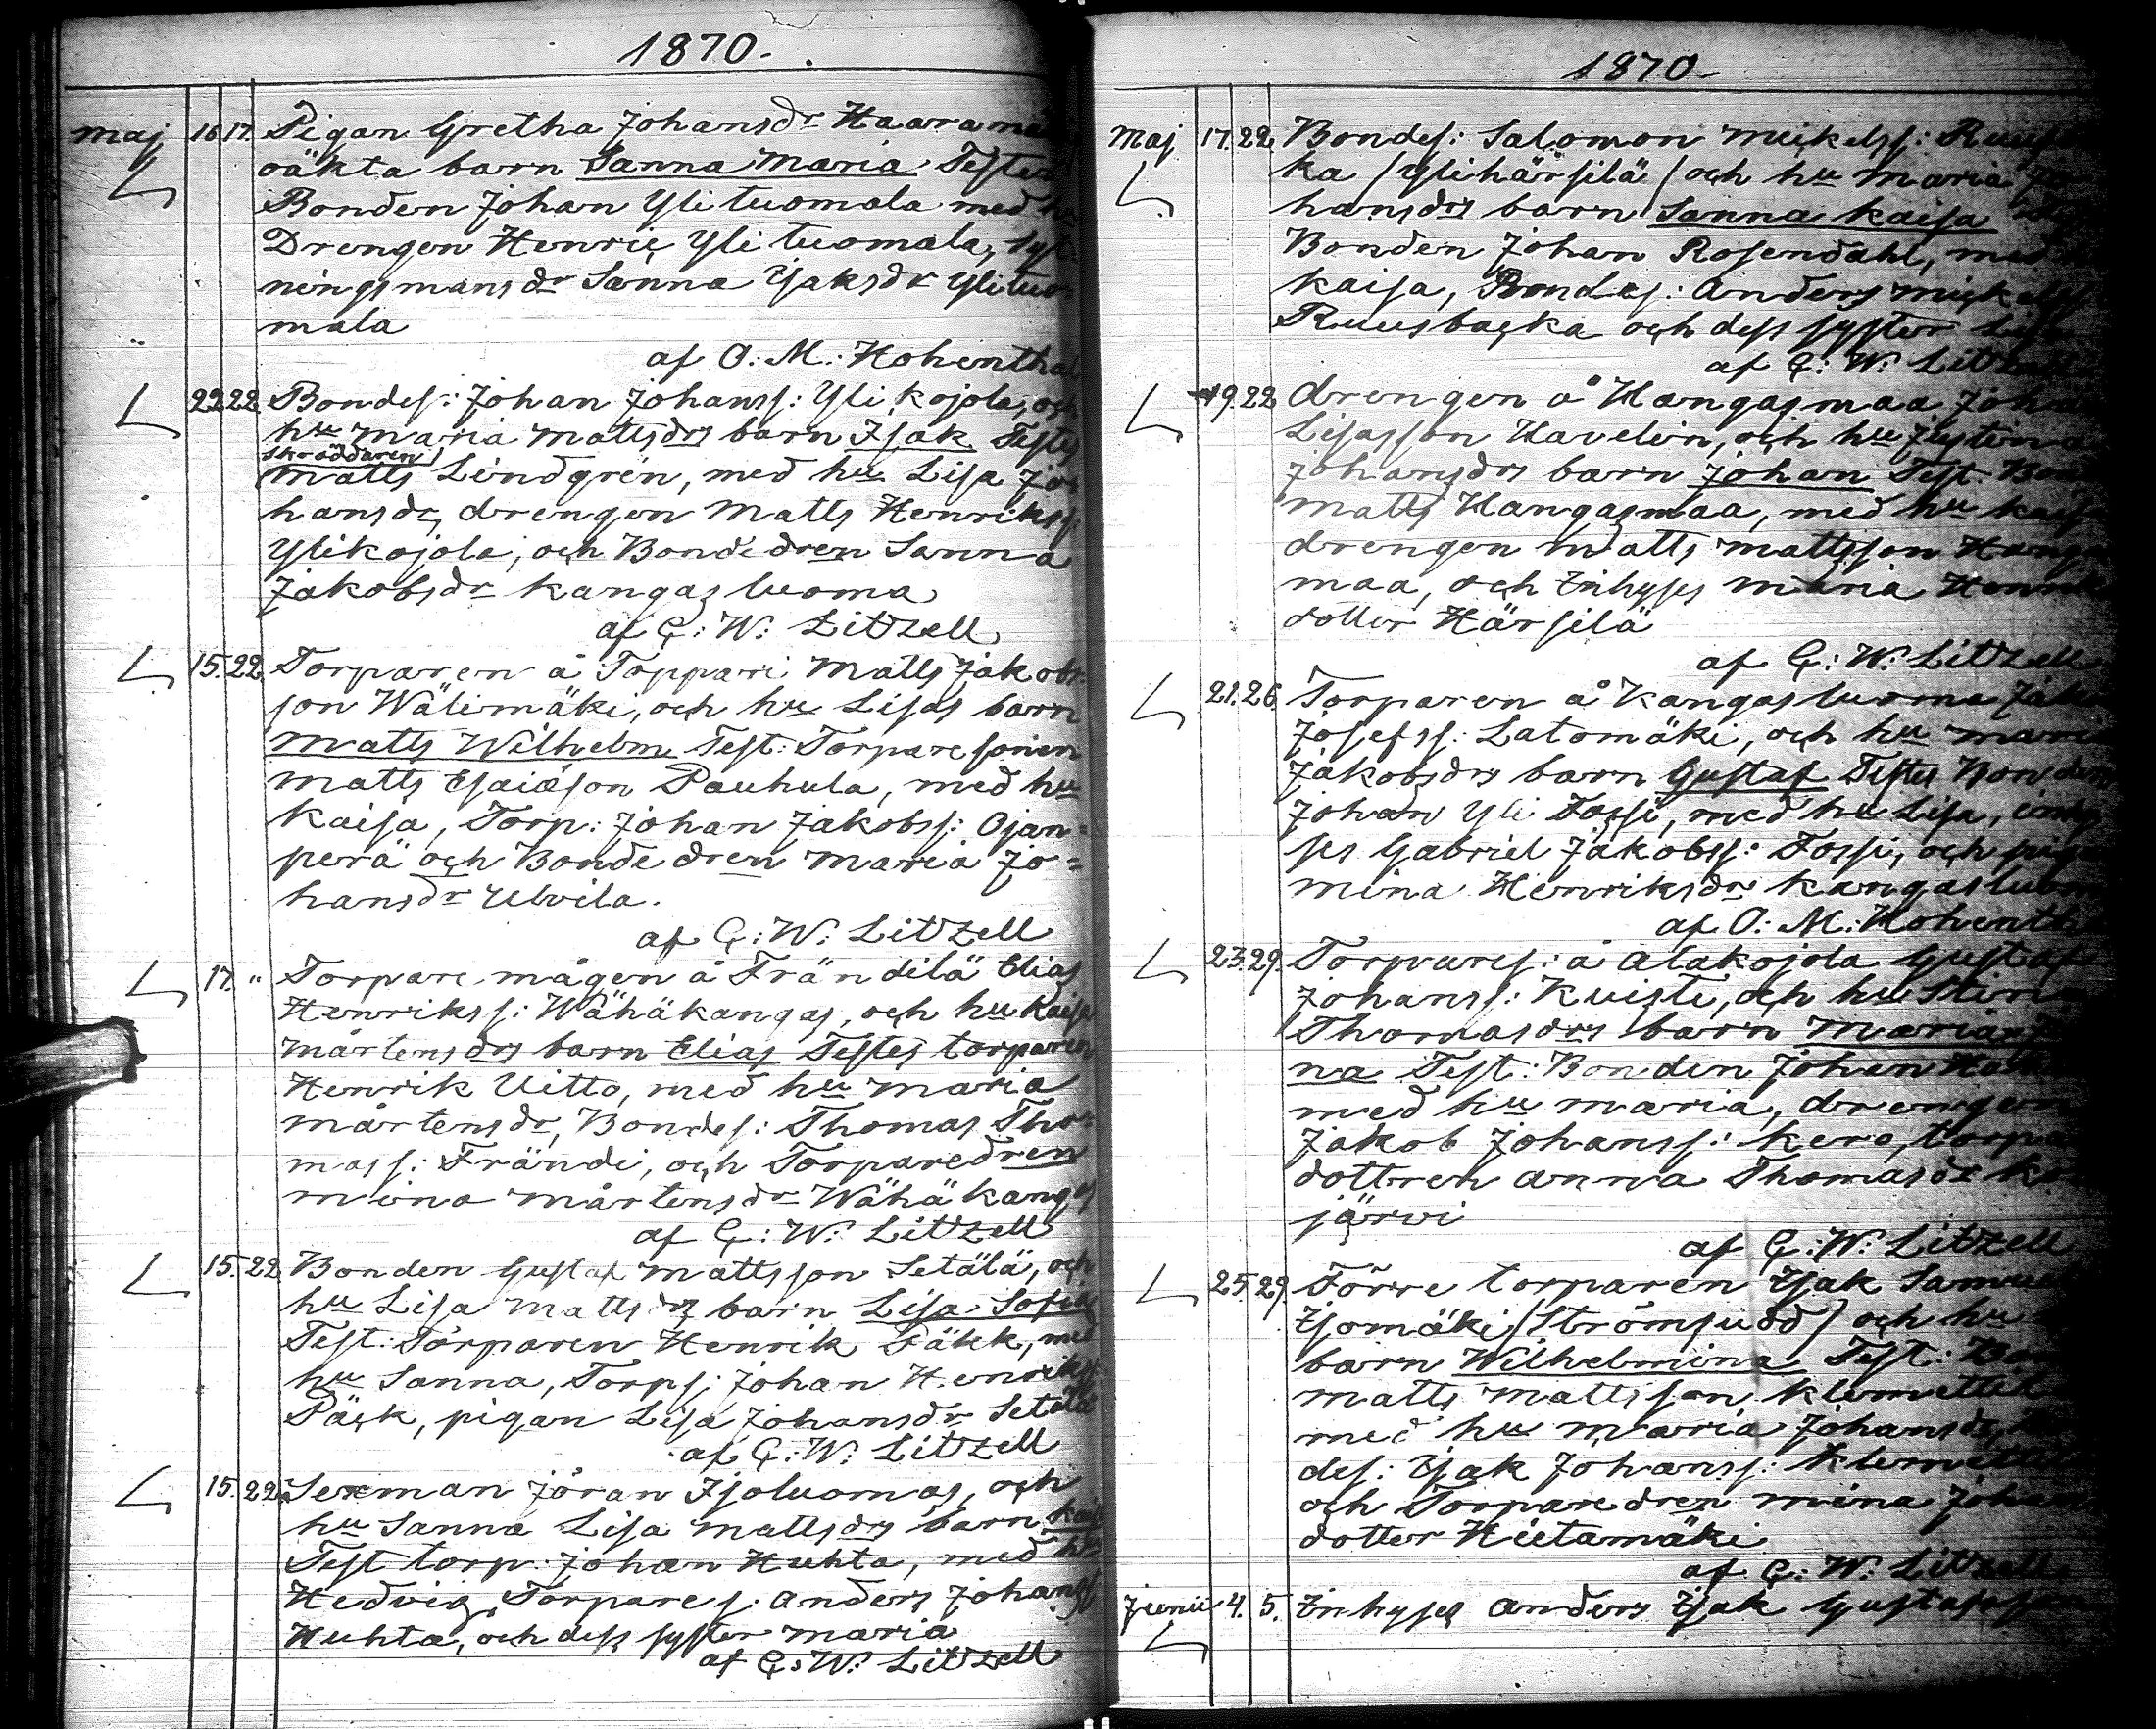 1870.
Maj 16 17. Pigan Gretha Johansdr Haara
oäkta barn Sanna Maria Testes
Bonden Johan Ylituomala med
Drengen Henric Ylituomala,
ningsmansdr Sanna Isaksdr Ylituo
mala
af O. M. Hohenthal
22 22 Bondes: Johan Johanss: Ylikojola, och
hu Maria Mattsdrs barn Isak Testes
skräddaren
Matts Lindgrén, med hu Lisa Jo
hansdr, drengen Matts Henrikss:
Ylikojola, och Bondedren Sanna
Jakobsdr Kangasluoma
af G: W: Litzell
15. 22 Torparen å Toppari Matts Jakobs
son Wälimäki, och hu Lisas barn
Matts Wilhelm Test: Torparesonen
Matts Esaiason Pauhula, med hu
Kaisa, Torp: Johan Jakobss: Ojan=
perä och Bondedren Maria Jo=
hansdr Ulvila.
af G: W: Litzell
17. " Torpare mågen å Frändilä Elias
Henrikss: Wähäkangas, och hu Kaisa
Mårtensdrs barn Elias Testes torparen
Henrik Uitto, med hu Maria
Mårtensdr, Bondes: Thomas Tho=
mass: Frändi, och Torparedren
Mina Mårtensdr Wähäkangas
af G: W: Litzell
15. 22 Bonden Gustaf Mattsson Setälä, och
hu Lisa Mattsdrs barn Lisa Sofia
Test: Torparen Henrik Päkk, med
hu Sanna, Torps: Johan Henrikss:
Päck, pigan Lisa Johansdr Setälä
af G: W: Litzell
15. 22 Sexman Jöran Isoluomas, och
hu Sanna Lisa Mattsdrs barn
Test torp: Johan Huhta, med hu
Hedvig, Torpares: Anders Johanss
Huhta, och dess syster Maria
af G: W: Litzell
1870.
Maj 17. 22 Bondes: Salomon Mickelss:
ka (Ylihärsilä) och hu Maria Jo
hansdrs barn Sanna Kaisa
Bonden Johan Rosendahl, med
Kaisa, Bondes: Anders Mickelss
Ruusbacka och dess syster Lisa
af G: W: Litzell
19. 22 drengen å Hangasmaa Johan
Lisasson Havelin, och hu Justina
Johansdrs barn Johan Test: Bon
Matts Hangasmaa, med hu Kaisa
drengen Matts Mattsson Hanga
maa, och Inhyses Maria Henriks
dotter Härsilä
af G: W: Litzell
21. 26 Torparen å Kangasluoma Jakob
Josefss: Latomäki, och hu Maria
Jakobsdrs barn Gustaf Testes Bonden
Johan Yli Fossi, med hu Lisa, inhy
ses Gabriel Jakobss: Fossi, och pigan
Mina Henriksdr Kangasluoma
af O: M: Hohenthal
23. 29. Torpares: å Alakojola Gustaf
Johanss: Kuisti, och hu Stina
Thomasdrs barn Maria
na Test: Bonden Johan
med hu Maria, drengen
Jakob Johanss: Kero, torpare
dottren Anna Thomasdr
järvi
af G: W: Litzell
25. 29. Förre torparen Isak Samuel
Isomäki (Strömsudd) och hu
barn Wilhelmina Test: Bon
Matts Mattsson Klemettilä
med hu Maria Johansdr,
des: Isak Johanss: Klemettilä
och Torparedren Mina Johans
dotter Hietamäki
af G: W: Litzell
Junii 4. 5. Inhyses Anders Isak Gustafsson